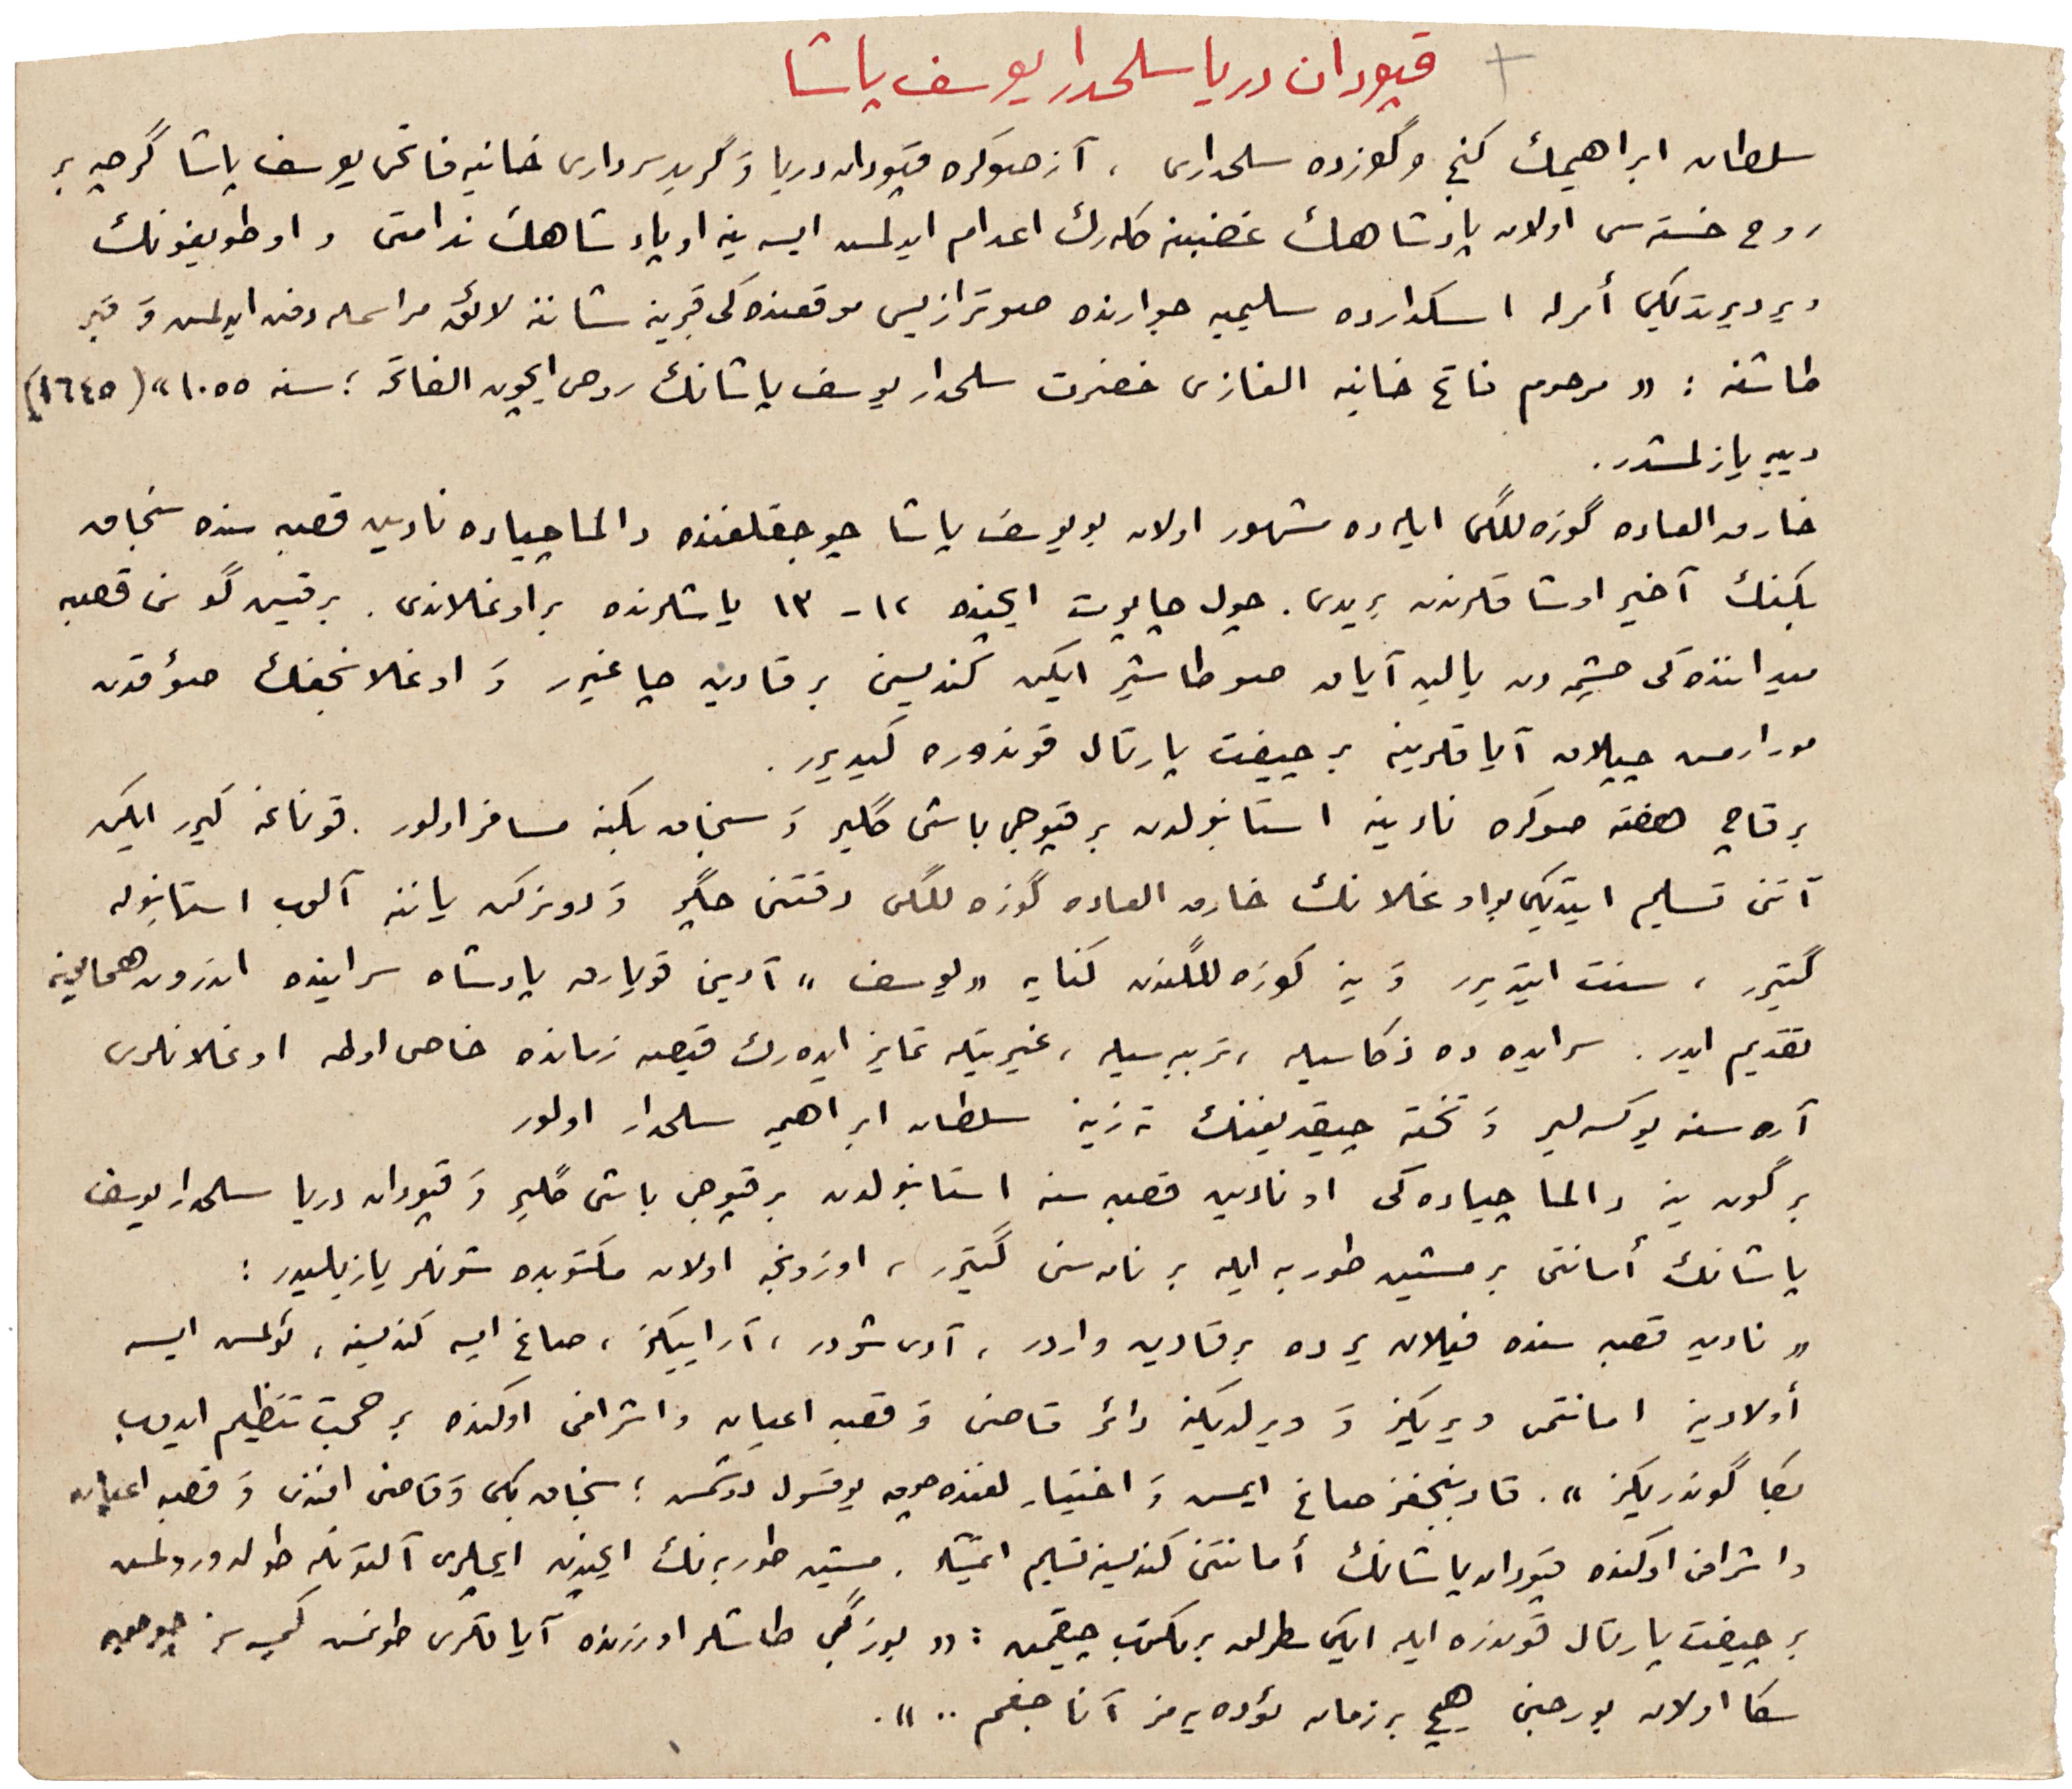 قپودان دریا سلحدار یوسف پاشا
سلطان ابراهیمك كنج و گوزده سلحداری ، آز صوكره قپودان دریا وَ گرید سرداری خانیه فاتحی یوسف پاشا گرچه بر
روح خسته‌سی اولان پادشاهك غضبینه كله‌رك اعدام ایدلمش ایسه ینه او پادشاهك ندامتی و او طویغونك
ویردیرتدیكی أمرله اسكدارده سلیمیه جوارنده صوترازیسی موقعنده‌كی قبرینه شاننه لائق مراسمله دفن ایدلمش وَ قبر
طاشنه : « مرحوم فاتح خانیه الغازی حضرت سلحدار یوسف پاشانك روحی ایچون الفاتحه ؛ سنه ١٠٥٥ » (١٦٤٥)
دییه یازلمشدر .
خارق العاده گوزه‌للگی ایله ده مشهور اولان بو یوسف پاشا چوجقلغنده دالماچیاده نادین قصبه سنده سنجاق
بكنك آخیر اوشاقلرندن بریدی . چول چاپوت ایچنده ١٢ - ١٣ یاشلرنده بر اوغلاندی . بر قیش گونی قصبه
میداننده‌كی چشمه‌دن یالین آیاق صو طاشیر ایكن كندیسنی بر قادین چاغیرر وَ اوغلانجغك صوٴقدن
مورارمش چیپلاق آیاقلرینه بر چیفت پارتال قوندوره كیدیرر .
بر قاچ هفته صوكره نادینه استانبولدن بر قپوجی باشی گلیر وَ سنجاق بكنه مسافر اولور . قوناغه كیرر ایكن
آتنی تسلیم ایتدیكی بو اوغلانك خارق العاده گوزه‌للگی دقتنی چكر وَ دونركن یاننه آلوب استانبوله
گتیرر ، سنت ایتدیرر وَ ینه گوزه‌للگندن كنایه « یوسف » آدینی قویارق پادشاه سراینده اندرون همایونه
تقدیم ایدر . سرایده ده ذكاسیله ، تربیه سیله ، غیرتیله تمایز ایده‌رك قیصه زمانده خاص اوطه اوغلانلری
آره سنه یوكسه‌لیر وَ تخته چیقدیغنك ‌ سلطان ابراهیمه سلحدار اولور
بر گون ینه دالماچیاده‌كی او نادین قصبه سنه استانبولدن بر قپوجی باشی گلیر وَ قپودان دریا سلحدار یوسف
پاشانك أمانتی بر مشین طوربه ایله بر نامه سنی گتیرر ، اوزونجه اولان مكتوبده شونلر یازیلیدر :
« نادین قصبه سنده فیلان یرده بر قادین واردر ، آدی شودر ، آراییكز ، صاغ ایسه كندیسنه ، ئولمش ایسه
أولادینه امانتمی ویریكز وَ ویرلدیكنه دائر قاضی وَ قصبه اعیان و اشرافی اوكنده بر حجت تنظیم ایدوب
بكا گوندریكز » . قادینجغز صاغ ایمش وَ اختیارلغنده چوق یوقسول دوشمش ؛ سنجاق بكی وَ قاضی افندی وَ قصبه اعیان
و اشرافی اوكنده قپودان پاشانك أمانتنی كندیسنه تسلیم ایتمشلر . مشین طوربه‌نك ایچندن ایچلری آلتونله طولدورولمش
بر چیفت پارتال قوندره ایله ایكی سطرلق بر مكتوب چیقمش : « بوز گبی طاشلر اوزرنده آیاقلری طوٴنمش كیمسه‌سز چوجوغك
سكا اولان بورجنی هیچ بر زمان ئوده‌یه‌مز آنا جغم .. » .